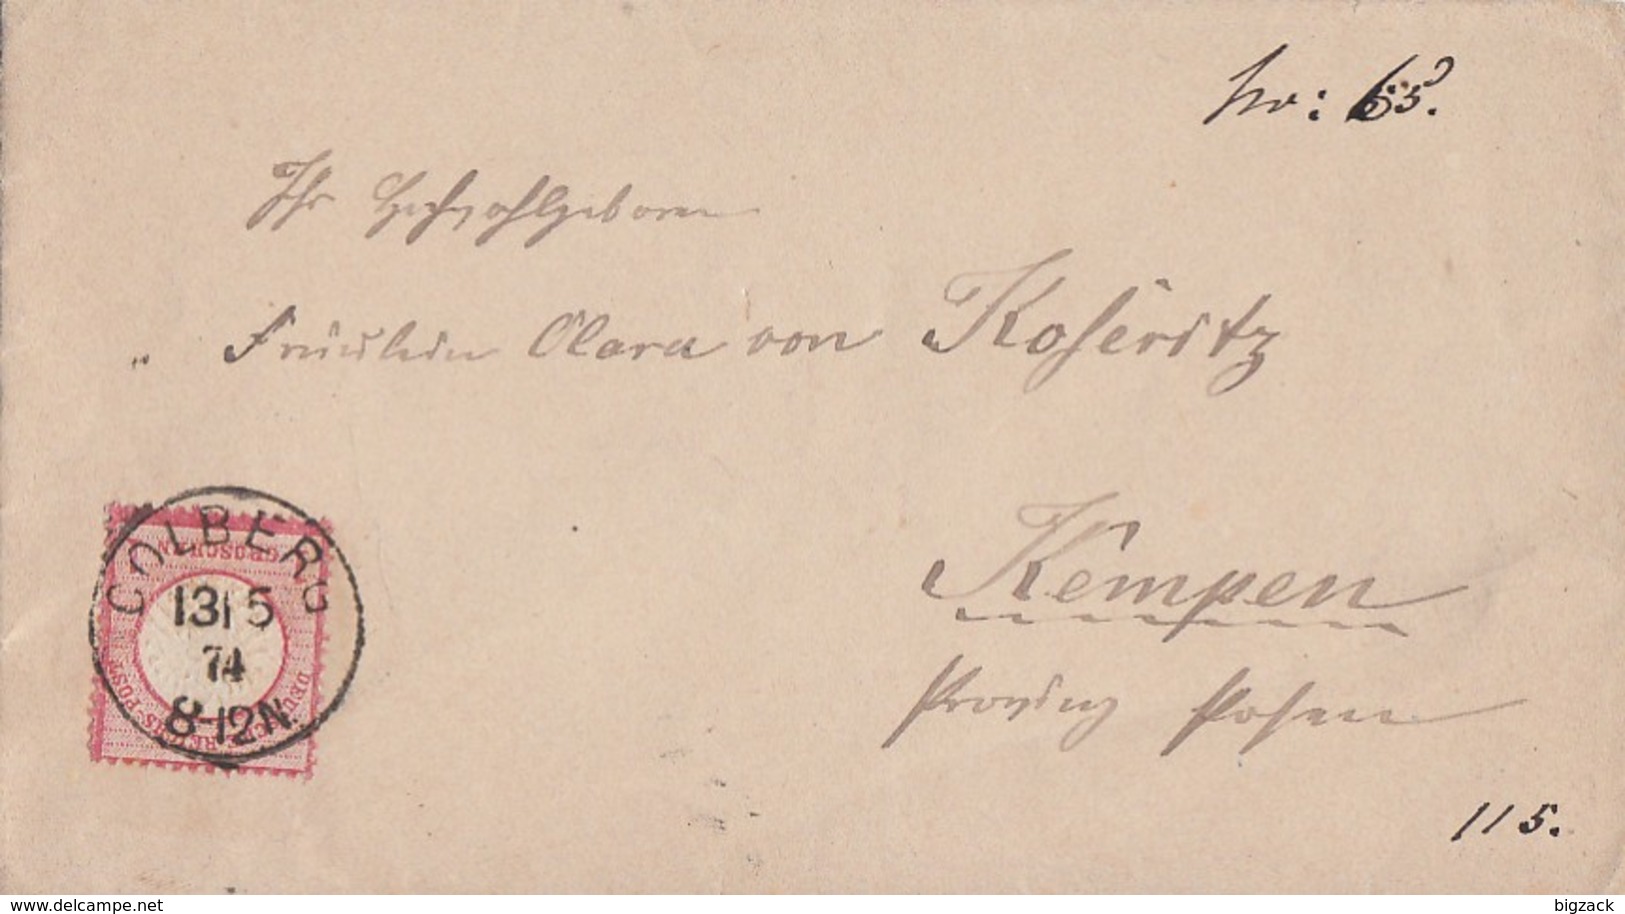 No: 65.
Ihr Hochwohlgeboren
Fräulein Clara von Koseritz
Kempen
Provinz Posen
115.
COLBERG
13 5
74
8-12N.
GROSCHEN
DEUTSCHE REICHS-POST
www.delcampe.net
bigzack